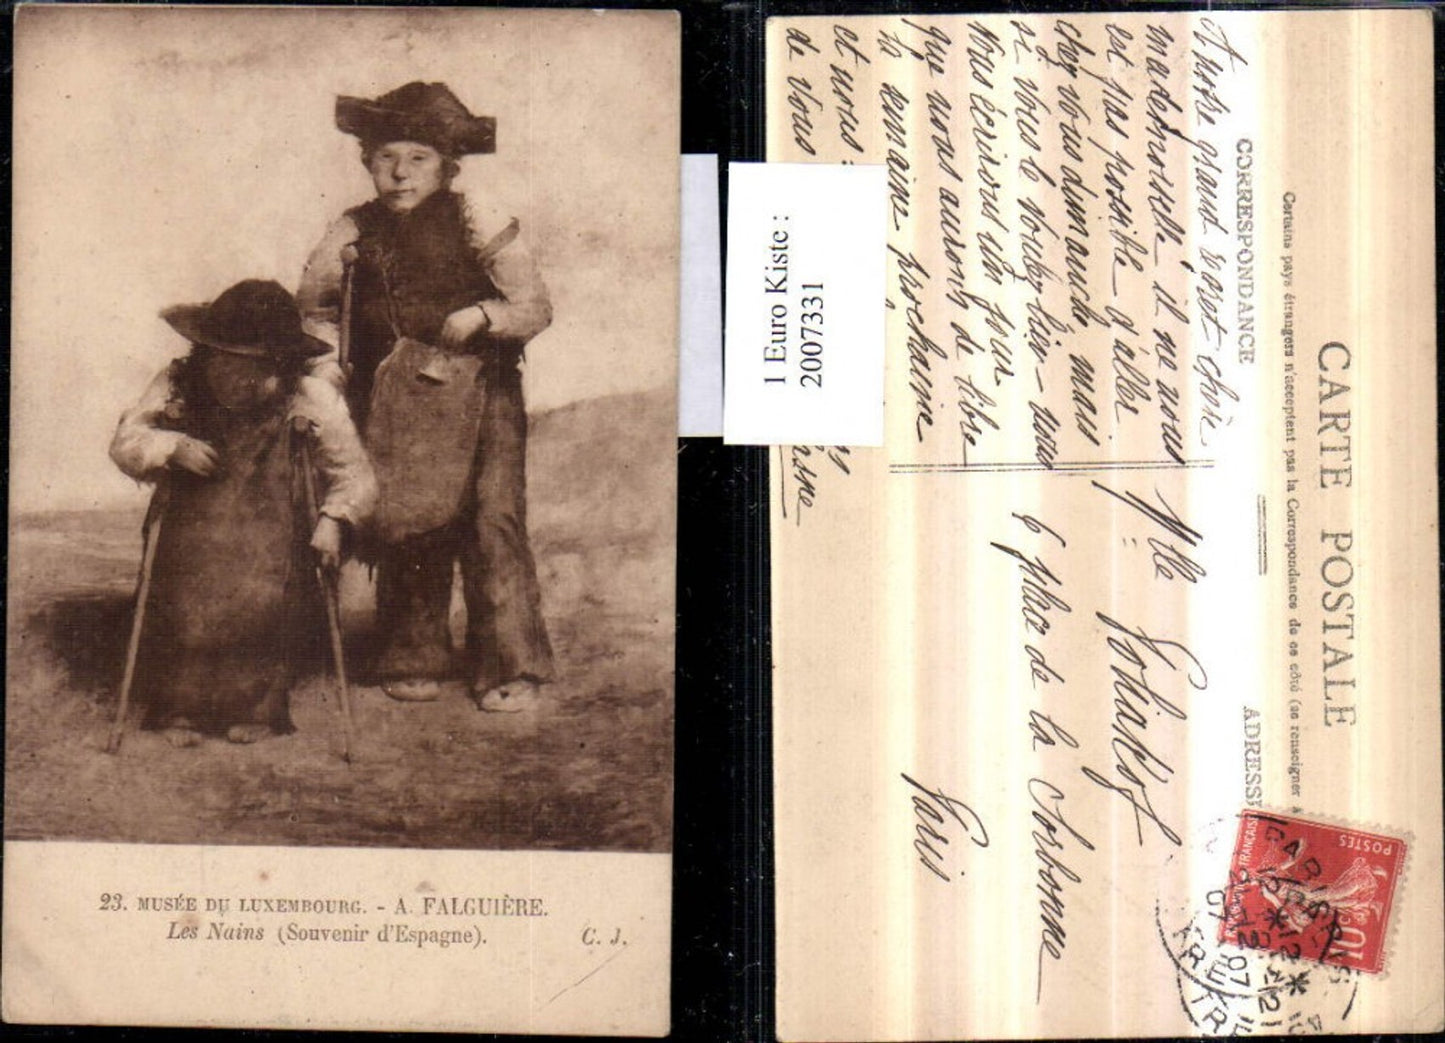 23. MUSÉE DU LUXEMBOURG. - A. FALGUIÈRE.
Les Nains (Souvenir d'Espagne).
C. J.
1 Euro Kiste :
2007331
CARTE POSTALE
Certains pays étrangers n'acceptent pas la Correspondance de ce côté (se renseigner à
CORRESPONDANCE
ADRESSE
A notre grand regret chère
mademoiselle il ne nous
est pas possible d'aller
chez vous dimanche mais
si vous le voulez bien nous
vous écrirons un jour
que nous aurons de libre
la semaine prochaine
et nous
de vous
Mlle
6 place de la Sorbonne
Paris
POSTES
10
PARIS
07